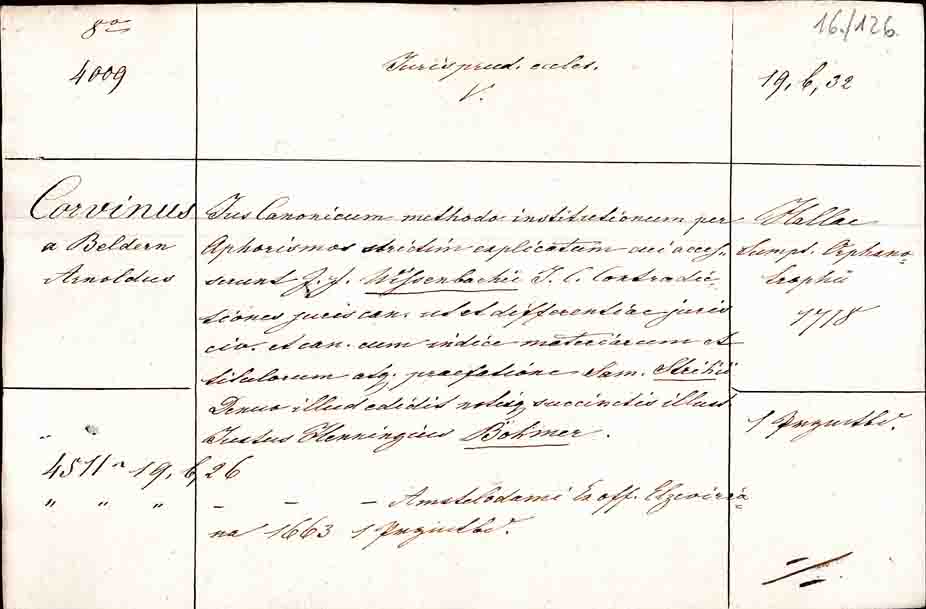 8°
16./126.
4009
Jurisprud. eccles.
V.
19, b, 32
Corvinus
a Beldern
Arnoldus
Jus Canonicum methodo institutionum per
Aphorismos strictim explicatum cui acces-
serunt J. J. Wissenbachii J. C. Contradic-
tiones juris can. ut et differentiae juris
civ. et can. cum indice materiarum et
titulorum atq. praefatione Sam. Strikii
Denuo illud edidit notisq succinctis illust.
Justus Henningius Böhmer.
Hallae
Sumpt. Orphano-
trophii
1718
1 Prgmtbd.
"
4511 " 19, b, 26
" " " - - - Amstelodami Ex off. Elzeviria-
na 1663 1 Prgmtbd.